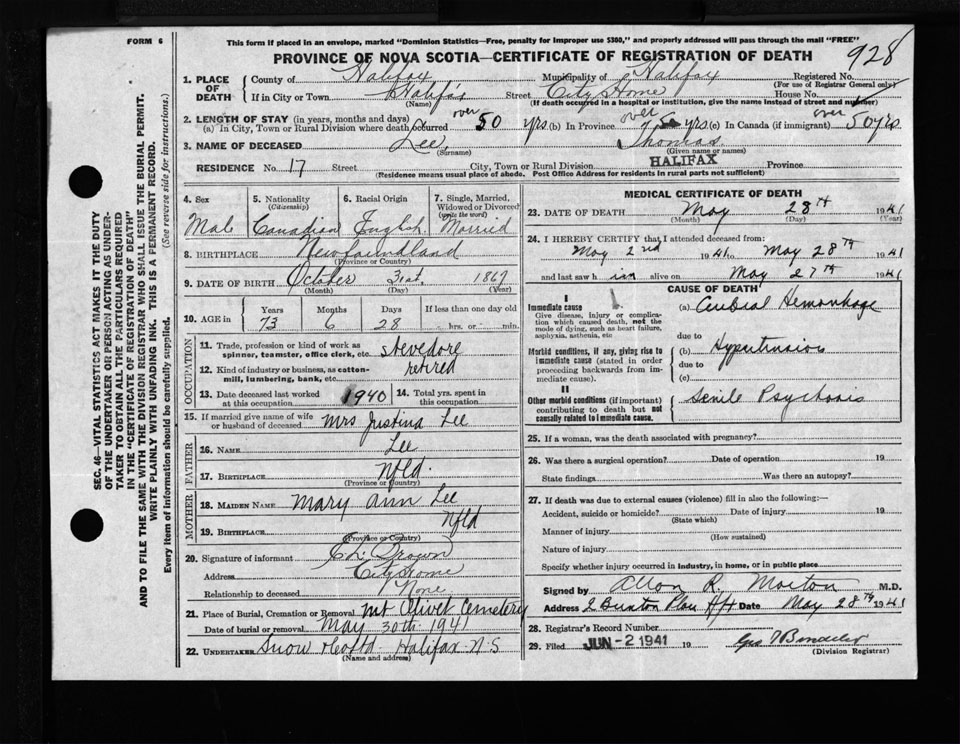 This form if placed in an envelope, marked "Dominion Statistics—Free, penalty for improper use $300," and properly addressed will pass through the mail "FREE"
FORM 6
PROVINCE OF NOVA SCOTIA—CERTIFICATE OF REGISTRATION OF DEATH
928
1. PLACE OF DEATH County of Halifax Municipality of Halifax Registered No.
(For use of Registrar General only)
If in City or Town Halifax Street City Home House No.
(Name) (If death occurred in a hospital or institution, give the name instead of street and number)
2. LENGTH OF STAY (in years, months and days)
(a) In City, Town or Rural Division where death occurred over 50 yrs (b) In Province over 50 (c) In Canada (if immigrant) over 50 yrs
3. NAME OF DECEASED Lee, Thomas
(Surname) (Given name or names)
RESIDENCE No. 17 Street City, Town or Rural Division HALIFAX Province
(Residence means usual place of abode. Post Office Address for residents in rural parts not sufficient)
4. Sex Male
5. Nationality (Citizenship) Canadian
6. Racial Origin English
7. Single, Married, Widowed or Divorced? (write the word) Married
8. BIRTHPLACE Newfoundland
(Province or Country)
9. DATE OF BIRTH October 31st 1867
(Month) (Day) (Year)
10. AGE in Years Months Days If less than one day old
73 6 28 hrs. or min.
OCCUPATION
11. Trade, profession or kind of work as spinner, teamster, office clerk, etc. stevedore
12. Kind of industry or business, as cotton-mill, lumbering, bank, etc. retired
13. Date deceased last worked at this occupation 1940
14. Total yrs. spent in this occupation
15. If married give name of wife or husband of deceased Mrs Justina Lee
FATHER
16. NAME Lee
17. BIRTHPLACE Nfld.
(Province or Country)
MOTHER
18. MAIDEN NAME Mary Ann Lee
19. BIRTHPLACE Nfld
(Province or Country)
20. Signature of informant Brown
Address City Home
Relationship to deceased None
21. Place of Burial, Cremation or Removal Mt Olivet Cemetery
Date of burial or removal May 30th 1941
22. UNDERTAKER Snow & Co Ltd Halifax N.S
(Name and address)
MEDICAL CERTIFICATE OF DEATH
23. DATE OF DEATH May 28th 1941
(Month) (Day) (Year)
24. I HEREBY CERTIFY that I attended deceased from:
May 2nd 1941 to May 28th 1941
and last saw him alive on May 27th 1941
CAUSE OF DEATH
I
Immediate cause
Give disease, injury or complication which caused death, not the mode of dying, such as heart failure, asphyxia, asthenia, etc
(a) Cerebral Hemorrhage
due to
Morbid conditions, if any, giving rise to immediate cause (stated in order proceeding backwards from immediate cause).
(b) Hypertension
due to
(c)
II
Other morbid conditions (if important) contributing to death but not causally related to immediate cause.
Senile Psychosis
25. If a woman, was the death associated with pregnancy?
26. Was there a surgical operation? Date of operation 19
State findings Was there an autopsy?
27. If death was due to external causes (violence) fill in also the following:—
Accident, suicide or homicide? Date of injury 19
(State which)
Manner of injury
(How sustained)
Nature of injury
Specify whether injury occurred in industry, in home, or in public place
Signed by Allan R. Morton M.D.
Address Hfx Date May 28th 1941
28. Registrar's Record Number
29. Filed JUN - 2 1941 19
(Division Registrar)
SEC. 46—VITAL STATISTICS ACT MAKES IT THE DUTY
OF THE UNDERTAKER OR PERSON ACTING AS UNDER-
TAKER TO OBTAIN ALL THE PARTICULARS REQUIRED
IN THE "CERTIFICATE OF REGISTRATION OF DEATH"
AND TO FILE THE SAME WITH THE DIVISION REGISTRAR WHO SHALL ISSUE THE BURIAL PERMIT.
WRITE PLAINLY WITH UNFADING INK. THIS IS A PERMANENT RECORD.
Every item of information should be carefully supplied. (See reverse side for instructions.)